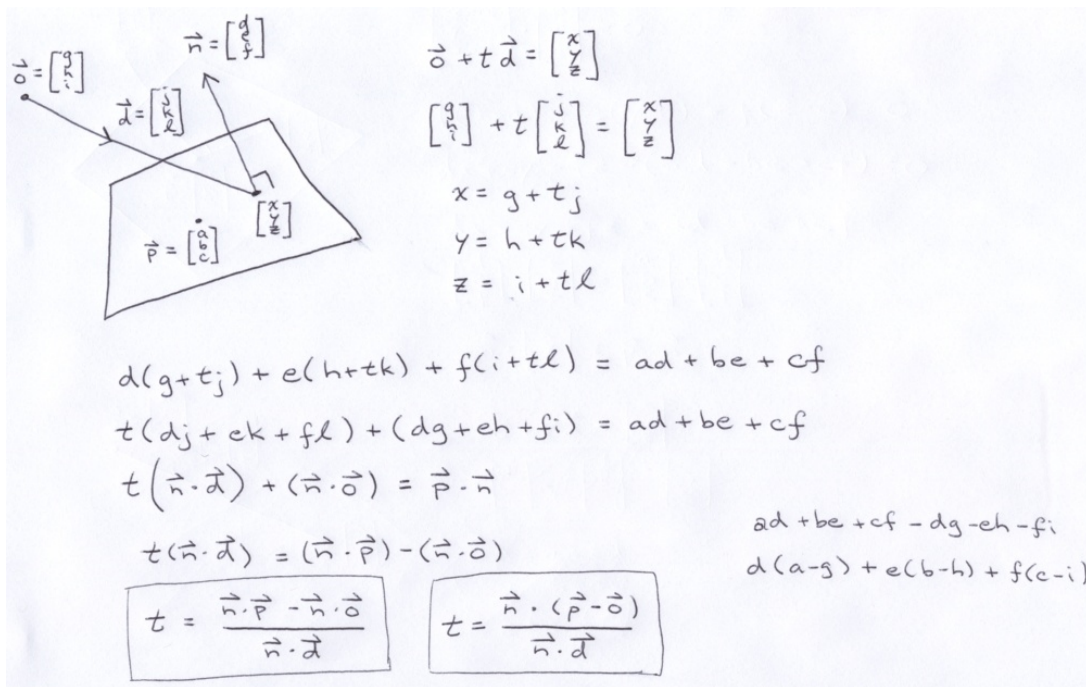 n⃗ = [d e f]
o⃗ = [g h i]
d⃗ = [j k l]
[x y z]
p⃗ = [a b c]
o⃗ + t d⃗ = [x y z]
[g h i] + t [j k l] = [x y z]
x = g + tj
y = h + tk
z = i + tl
d(g+tj) + e(h+tk) + f(i+tl) = ad + be + cf
t(dj + ek + fl) + (dg + eh + fi) = ad + be + cf
t(n⃗·d⃗) + (n⃗·o⃗) = p⃗·n⃗
t(n⃗·d⃗) = (n⃗·p⃗) - (n⃗·o⃗)
t = (n⃗·p⃗ - n⃗·o⃗) / (n⃗·d⃗)
t = (n⃗·(p⃗-o⃗)) / (n⃗·d⃗)
ad + be + cf - dg - eh - fi
d(a-g) + e(b-h) + f(c-i)